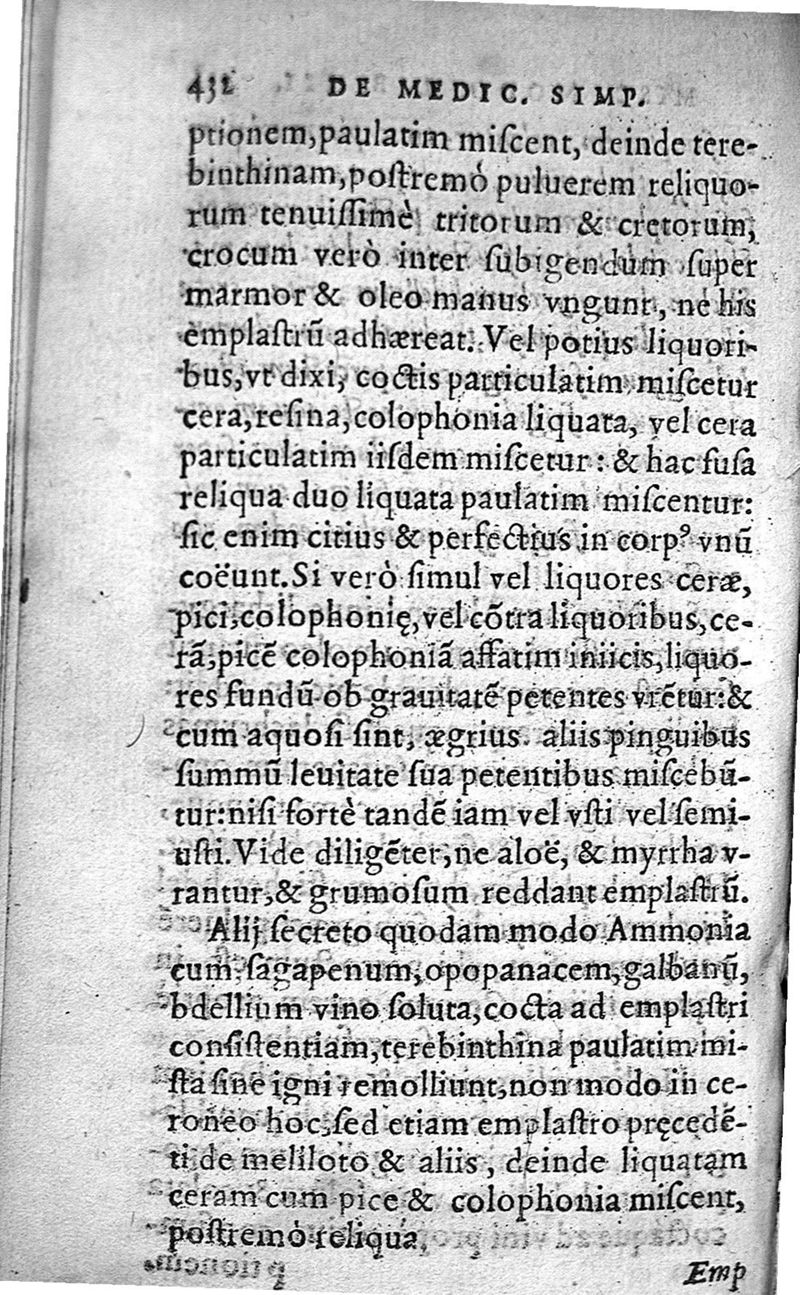 432 DE MEDIC. SIMP.
ptionem, paulatim miſcent, deinde tere-
binthinam, poſtremò puluerem reliquo-
rum tenuiſſimè tritorum & cretorum,
crocum verò inter ſubigendum ſuper
marmor & oleo manus vngunt, ne his
emplaſtrũ adhæreat. Vel potius liquori-
bus, vt dixi, coctis particulatim miſcetur
cera, reſina, colophonia liquata, vel cera
particulatim iiſdem miſcetur: & hac fuſa
reliqua duo liquata paulatim miſcentur:
ſic enim citius & perfectius in corpꝰ vnũ
coëunt. Si verò ſimul vel liquores ceræ,
pici, colophonię, vel cõtra liquoribus, ce-
rã, picẽ colophoniã affatim iniicis, liquo-
res fundũ ob grauitatẽ petentes vrẽtur: &
cum aquoſi ſint, ægrius aliis pinguibus
ſummũ leuitate ſua petentibus miſcebũ-
tur: niſi fortè tandẽ iam vel vſti vel ſemi-
uſti. Vide diligẽter, ne aloë, & myrrha v-
rantur, & grumoſum reddant emplaſtrũ.
Alij ſecreto quodam modo Ammonia
cum ſagapenum, opopanacem, galbanũ,
bdellium vino ſoluta, cocta ad emplaſtri
conſiſtentiam, terebinthina paulatim mi-
ſta ſine igni remolliunt, non modo in ce-
roneo hoc, ſed etiam emplaſtro pręcedẽ-
ti de meliloto & aliis, deinde liquatam
ceram cum pice & colophonia miſcent,
poſtremò reliqua,
Emp